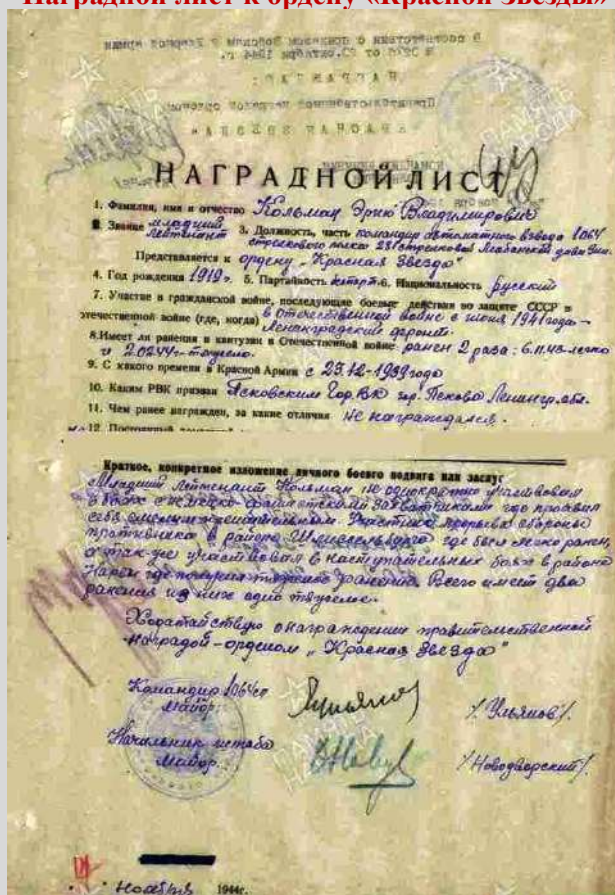 Наградной лист к ордену «Красной Звезды»
НАГРАДНОЙ ЛИСТ
1. Фамилия, имя и отчество Кольман Эрик Владимирович
2. Звание младший лейтенант 3. Должность, часть командир автоматного взвода 1064
стрелкового полка 281 стрелковой Любанской дивизии.
Представляется к ордену „Красная Звезда"
4. Год рождения 1919 г. 5. Партийность 6. Национальность русский
7. Участие в гражданской войне, последующие боевые действия по защите СССР и
отечественной войне (где, когда) в Отечественной войне с июня 1941 года –
Ленинградский фронт.
8. Имеет ли ранения и контузии в Отечественной войне ранен 2 раза: 6.11.43-легко
и 2.02.44г-тяжело.
9. С какого времени в Красной Армии с 23.12-1939 года
10. Каким РВК призван Псковским Гор.ВК гор. Псково Ленингр. обл.
11. Чем ранее награжден, за какие отличия не награждался.
12. Постоянный
Краткое, конкретное изложение личного боевого подвига или заслуг
Младший Лейтенант Кольман неоднократно участвовал
в боях с немецко-фашистскими захватчиками где проявил
себя смелым решительным. Участник прорыва обороны
противника в районе Шлиссельбурга где был легко ранен,
а так же участвовал в наступательных боях в районе
Нарвы где получил тяжелое ранение. Всего имеет два
ранения из них одно тяжелое.
Ходатайствую о награждении правительственной
наградой – орденом „Красная Звезда"
Командир 1064 сп
майор: /Ульянов/.
Начальник штаба
майор. /Новодворский/.
Ноября 1944г.